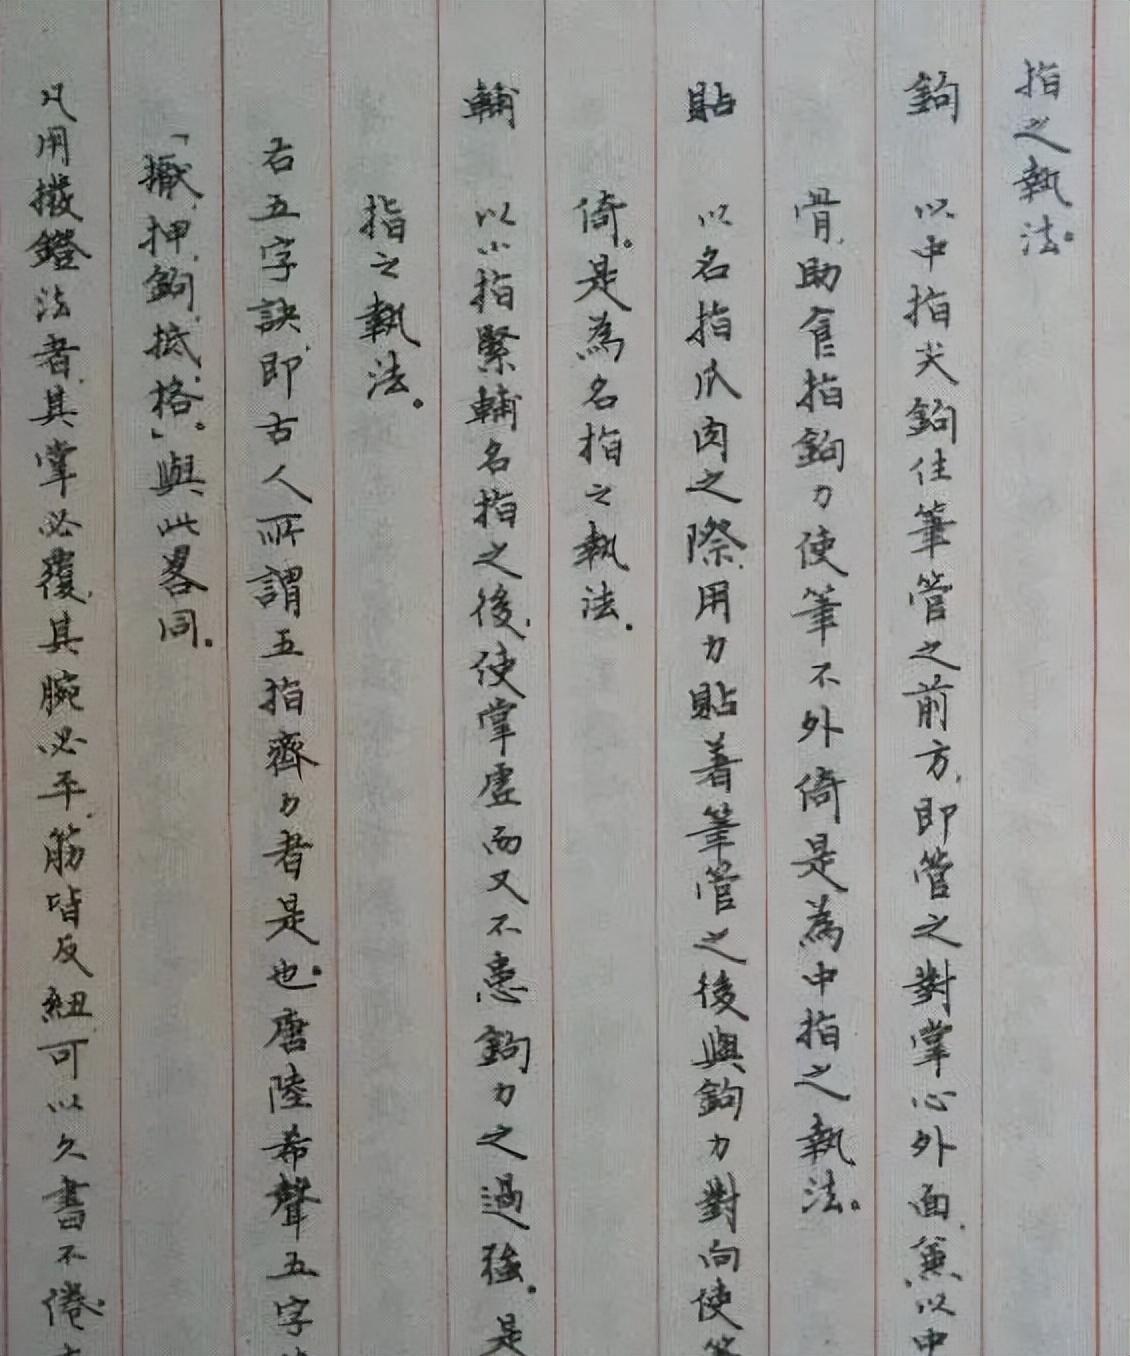 指之執法。
鉤　以中指尖鉤住筆管之前方，即管之對掌心外面，兼以中
骨，助食指鉤力使筆不外倚是為中指之執法。
貼　以名指爪肉之際，用力貼著筆管之後與鉤力對向使
倚。是為名指之執法．
輔　以小指緊輔名指之後，使掌虛而又不患鉤力之過強。是
指之執法。
右五字訣，即古人所謂五指齊力者是也。唐陸希聲五字
「擫、押、鉤、抵、格。」與此畧同．
凡用撥鐙法者，其掌必覆，其腕必平，筋皆反紐，可以久書不倦。